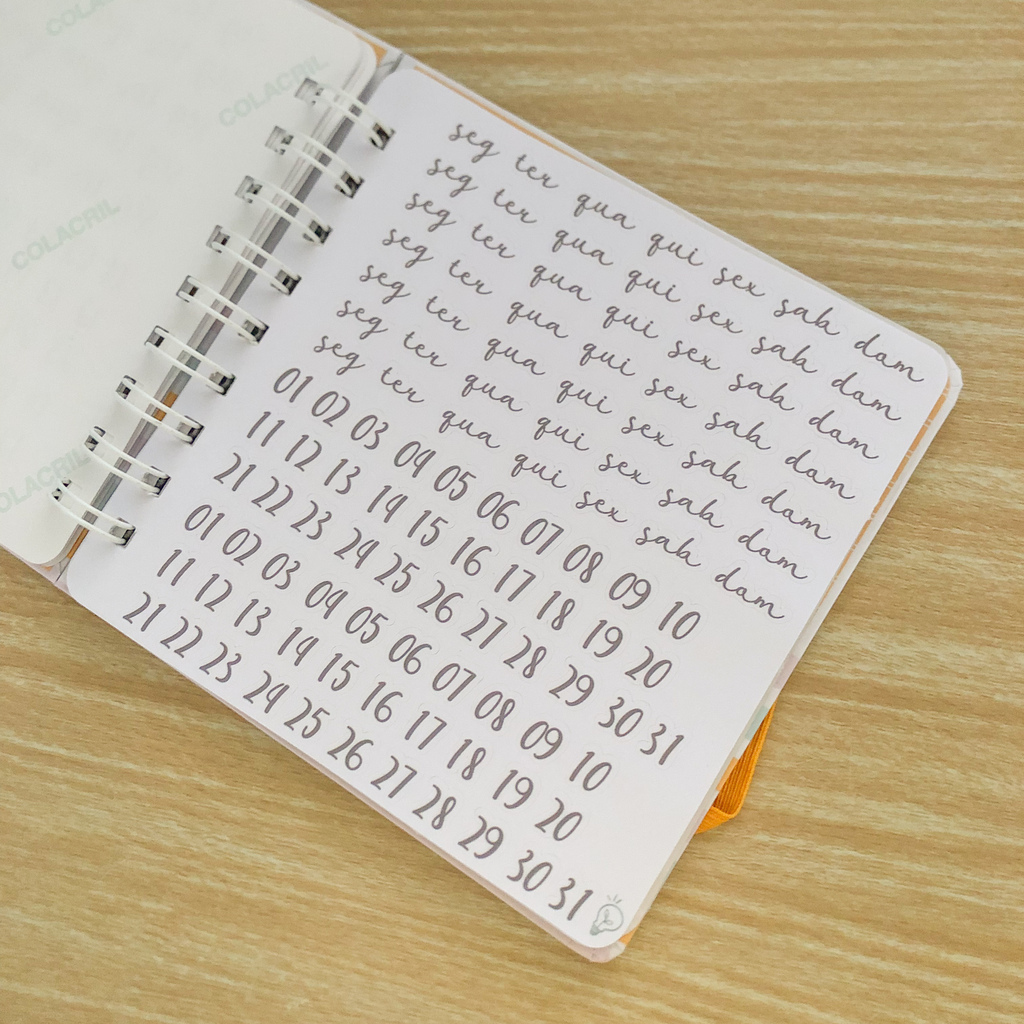 COLACRIL
COLACRIL
COLACRIL
COLACRIL
seg ter qua qui sex sab dom
seg ter qua qui sex sab dom
seg ter qua qui sex sab dom
seg ter qua qui sex sab dom
seg ter qua qui sex sab dom
seg ter qua qui sex sab dom
seg ter qua qui sex sab dom
01 02 03 04 05 06 07 08 09 10
11 12 13 14 15 16 17 18 19 20
21 22 23 24 25 26 27 28 29 30 31
01 02 03 04 05 06 07 08 09 10
11 12 13 14 15 16 17 18 19 20
21 22 23 24 25 26 27 28 29 30 31